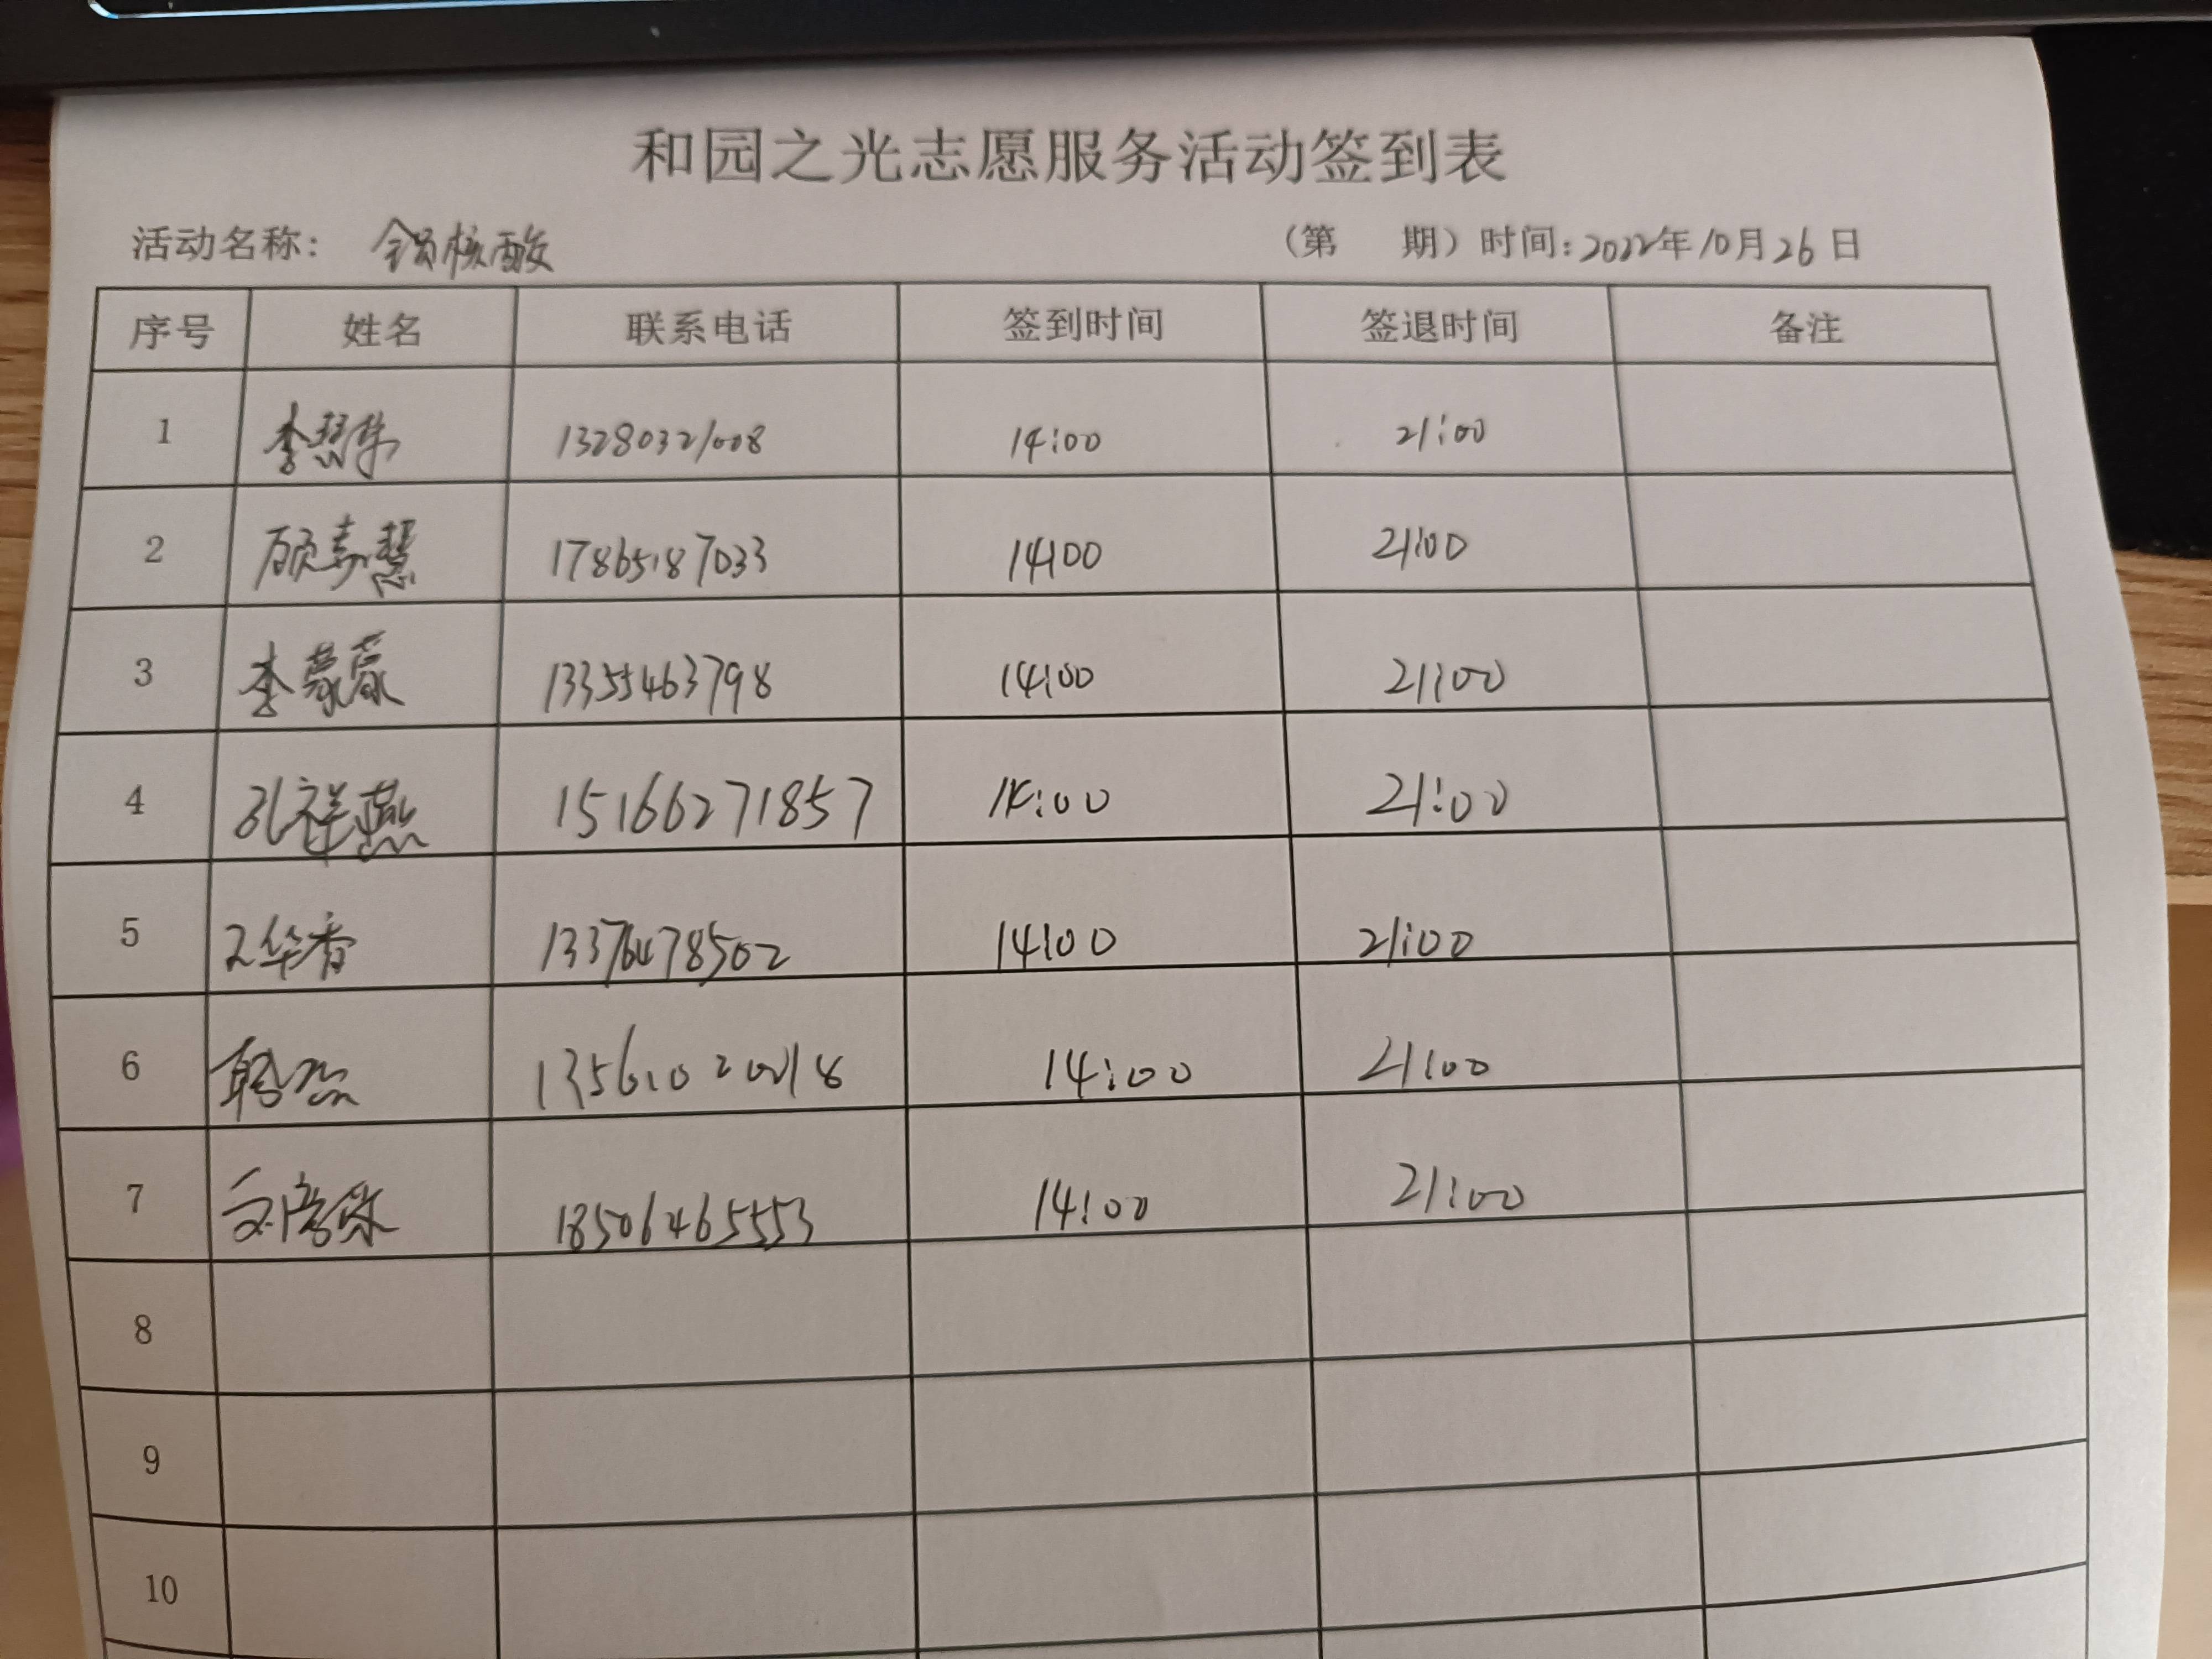 和园之光志愿服务活动签到表
活动名称： 全员核酸 （第 期）时间：2022年10月26日
序号 姓名 联系电话 签到时间 签退时间 备注
1 李慧伟 13280321008 14:00 21:00
2 顾寿慧 17865187033 14:00 21:00
3 李蒙蒙 13355463798 14:00 21:00
4 孔祥燕 15166271857 14:00 21:00
5 王华香 13376478502 14:00 21:00
6 14:00 21:00
7 18506465553 14:00 21:00
8
9
10